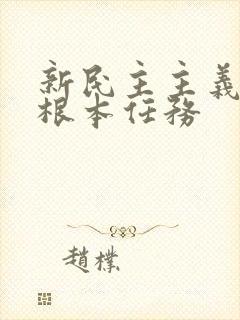 新民主主義
根本任務
趙樸